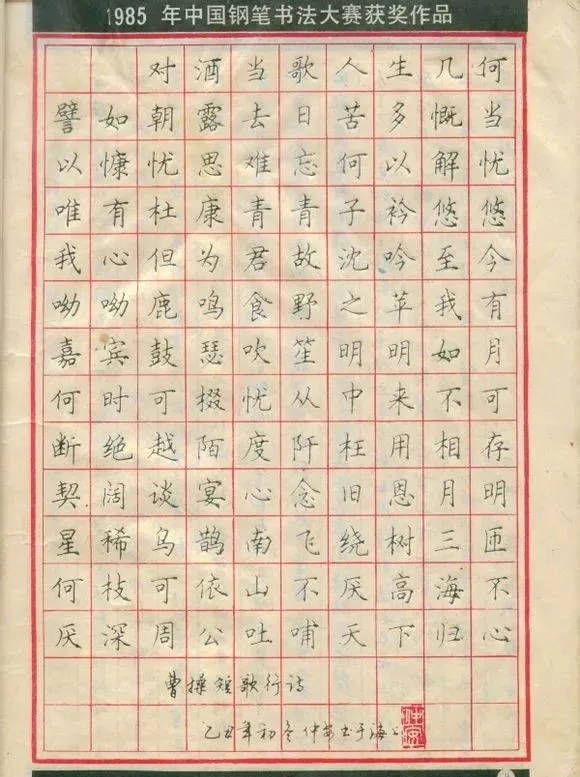 1985 年中国钢笔书法大赛获奖作品
对酒当歌人生几何
譬如朝露去日苦多慨当
以慷忧思难忘何以解忧
唯有杜康青青子衿悠悠
我心但为君故沈吟至今
呦呦鹿鸣食野之苹我有
嘉宾鼓瑟吹笙明明如月
何时可掇忧从中来不可
断绝越陌度阡枉用相存
契阔谈宴心念旧恩月明
星稀乌鹊南飞绕树三匝
何枝可依山不厌高海不
厌深周公吐哺天下归心
曹操短歌行诗
乙丑年初冬仲安书于海上
仲安